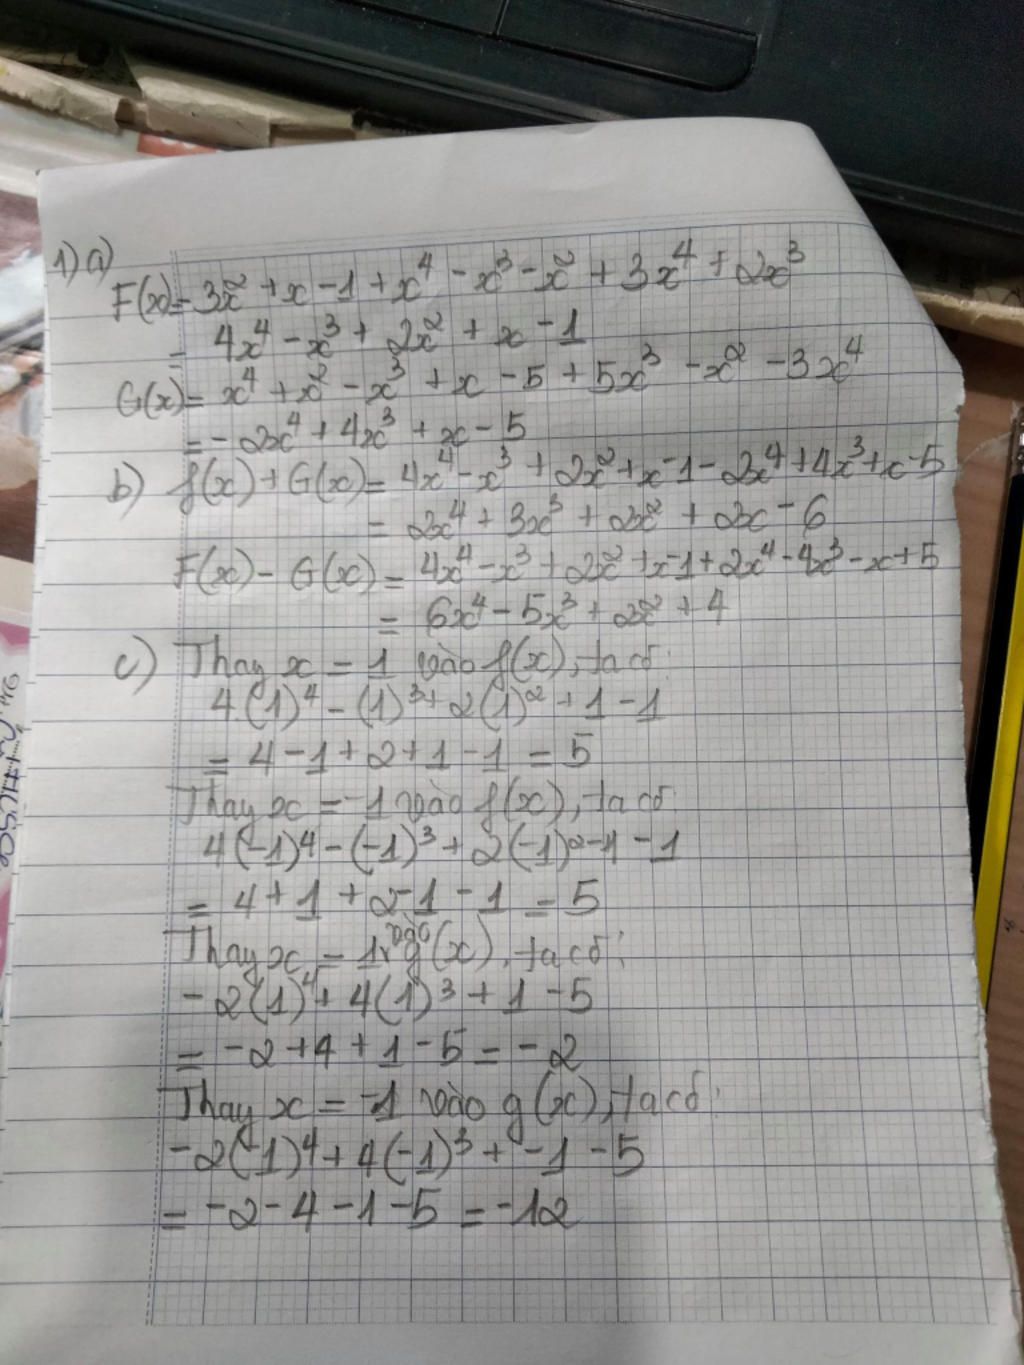 1) a)
F(x) = 3x² + x - 1 + x⁴ - x³ - x² + 3x⁴ + 2x³
= 4x⁴ - x³ + 2x² + x - 1
G(x) = x⁴ + x² - x³ + x - 5 + 5x³ - x² - 3x⁴
= - 2x⁴ + 4x³ + x - 5
b) f(x) + G(x) = 4x⁴ - x³ + 2x² + x - 1 - 2x⁴ + 4x³ + x - 5
= 2x⁴ + 3x³ + 2x² + 2x - 6
F(x) - G(x) = 4x⁴ - x³ + 2x² + x - 1 + 2x⁴ - 4x³ - x + 5
= 6x⁴ - 5x³ + 2x² + 4
c) Thay x = 1 vào f(x), ta có:
4.(1)⁴ - (1)³ + 2(1)² + 1 - 1
= 4 - 1 + 2 + 1 - 1 = 5
Thay x = -1 vào f(x), ta có:
4(-1)⁴ - (-1)³ + 2(-1)² - 1 - 1
= 4 + 1 + 2 - 1 - 1 = 5
Thay x = 1 vào g(x), ta có:
- 2(1)⁴ + 4(1)³ + 1 - 5
= -2 + 4 + 1 - 5 = -2
Thay x = -1 vào g(x), ta có:
- 2(-1)⁴ + 4(-1)³ + -1 - 5
= -2 - 4 - 1 - 5 = -12